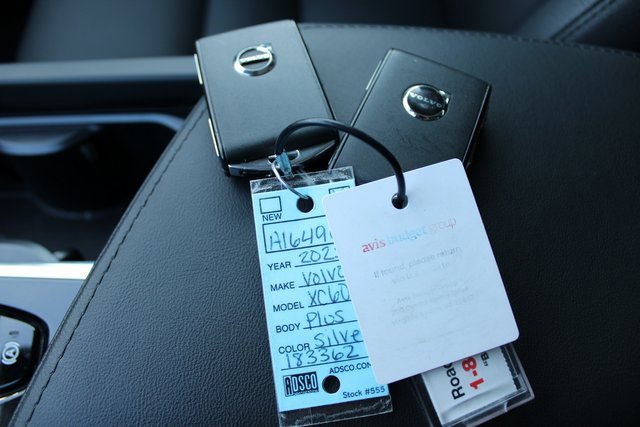 VOLVO
NEW
A1649
YEAR 202
MAKE VOLVO
MODEL XC60
BODY Plus
COLOR Silve
183362
ADSCO
ADSCO.CO
Stock #555
VOLVO
avis budget group
If found, please return
Road
1-8